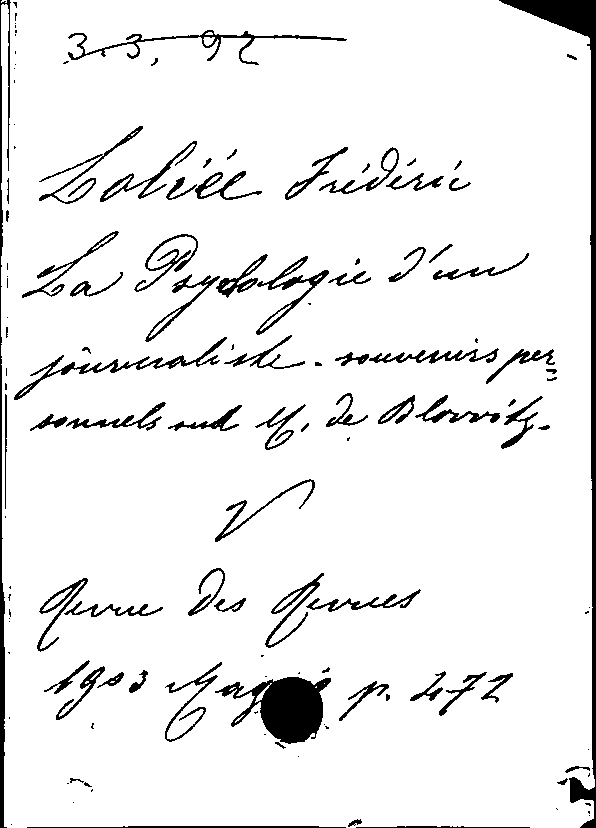 3.3.92
Loliée Frédéric
La Psycologie d'un
journaliste - souvenirs per=
sonnels sur M. de Blowitz.
V
Revue des Revues
1903 Maggio p. 472